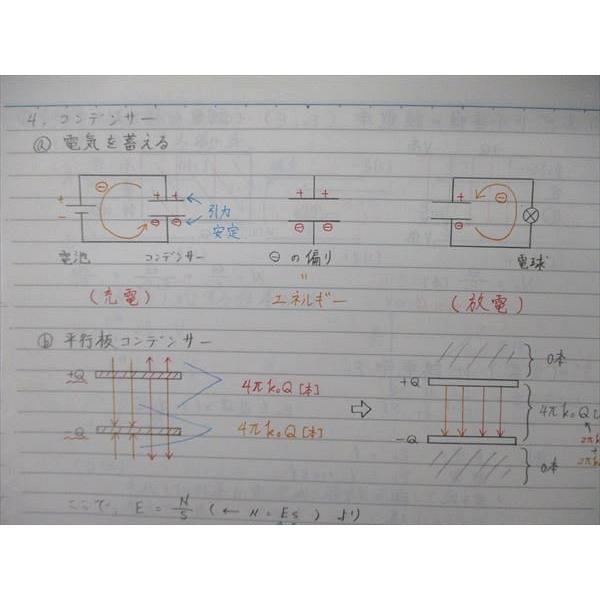 4. コンデンサー
ⓐ 電気を蓄える
+ - ⊖ + + ⊖ ⊖ 引力 安定
+ + ⊖ ⊖
+ + ⊖ ⊖ ⊖
電池 コンデンサー ⊖の偏り 電球
(充電) 〃 エネルギー (放電)
ⓑ 平行板コンデンサー
+Q 4πk₀Q[本]
-Q 4πk₀Q[本]
⇨
0本
+Q 4πk₀Q
-Q 0本
ここで、E = N/S (← N = ES) より